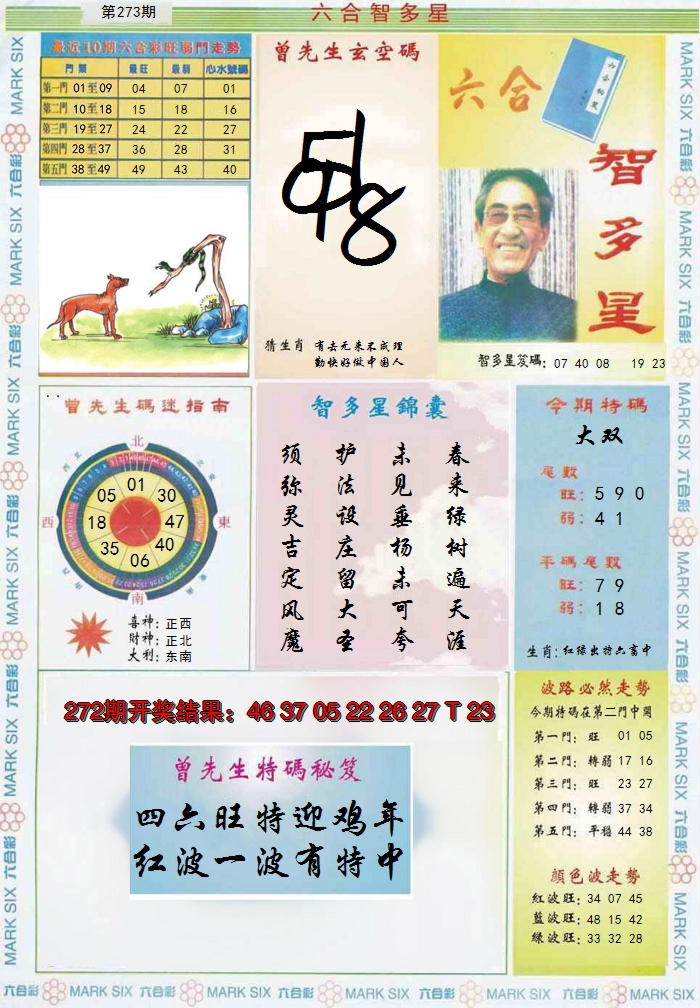 第273期
六合智多星
最近10期六合彩旺弱門走勢
門類 最旺 最弱 心水號碼
第一門 01至09 04 07 01
第二門 10至18 15 18 16
第三門 19至27 24 22 27
第四門 28至37 36 28 31
第五門 38至49 49 43 40
曾先生玄空碼
猜生肖 有去无来不成理
勤快好做中国人
六合
智多星
智多星笈碼: 07 40 08 19 23
曾先生碼迷指南
北
西北
東北
西
東
南
01
30
47
40
06
35
18
05
喜神: 正西
財神: 正北
大利: 东南
智多星錦囊
春来绿树遍天涯
未见垂杨未可夸
护法设庄留大圣
须弥灵吉定风魔
今期特碼
大双
尾數
旺: 5 9 0
弱: 4 1
平碼尾數
旺: 7 9
弱: 1 8
生肖: 红绿出特六畜中
272期开奖结果: 46 37 05 22 26 27 T 23
曾先生特碼秘笈
四六旺特迎鸡年
红波一波有特中
波路必然走勢
今期特碼在第二門中開
第一門: 旺 01 05
第二門: 轉弱 17 16
第三門: 旺 23 27
第四門: 轉弱 37 34
第五門: 平穩 44 38
顔色波走勢
紅波旺: 34 07 45
藍波旺: 48 15 42
綠波旺: 33 32 28
MARK SIX 六合彩